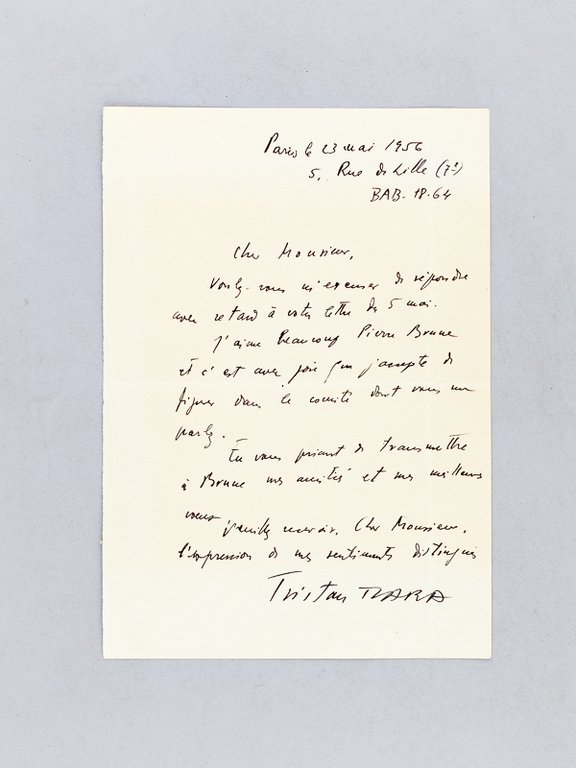 Paris le 23 mai 1956
5, Rue de Lille (7e)
BAB. 18-64
Cher Monsieur,
Voulez-vous m'excuser de répondre
avec retard à votre lettre du 5 mai.
J'aime beaucoup Pierre Brune
et c'est avec joie que j'accepte de
figurer dans le comité dont vous me
parlez.
En vous priant de transmettre
à Brune mes amitiés et mes meilleurs
vœux, veuillez recevoir, Cher Monsieur,
l'expression de mes sentiments distingués
Tristan TZARA